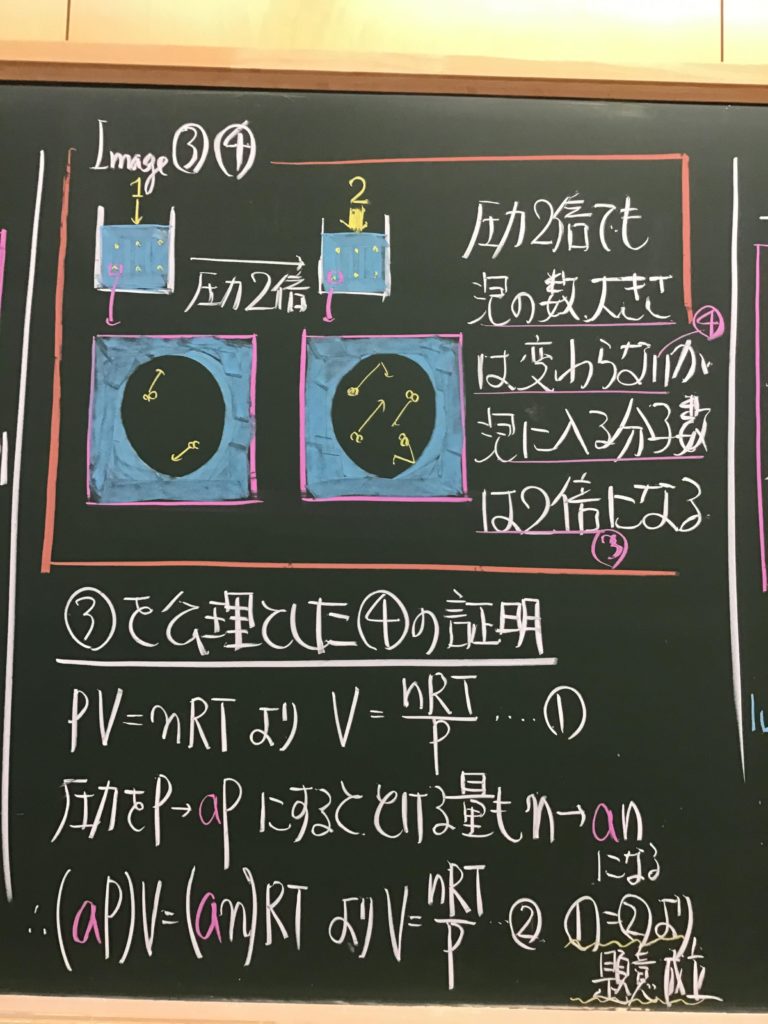 Image③④
1
2
圧力2倍
圧力2倍でも
泡の数、大きさ
は変わらないが
④
泡に入る分子数
は2倍になる
③
③を公理とした④の証明
PV=nRTより V=nRT/P ‥‥①
圧力をP→aPにするととける量もn→an
になる
∴(aP)V=(an)RT より V=nRT/P ‥② ①=②より
題意成立